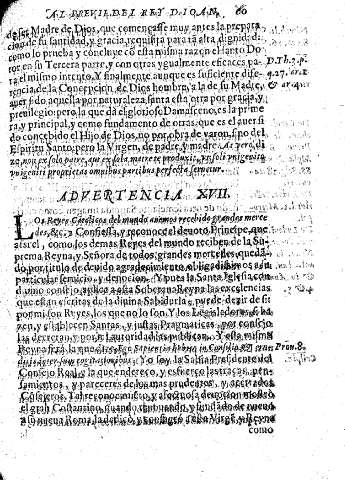 AL BREVE DEL REY D. IOAN. 60
de ser Madre de Dios, que començasse muy antes la prepara
cion de su santidad, y gracia, requisita para tā alta dignidad:
como lo prueba y concluye cō esta misma razon el santo Do
tor en su Tercera parte, y con otras ygualmente eficaces, pa-
ra el mismo intento. Y finalmente aunque es suficiente dife-
rencia, de la Concepcion de Dios hombre, a la de su Madre,
aver sido aquella por naturaleza, santa esta otra por gracia, y
previlegio: pero la que dà el glorioso Damasceno, es la prime
ra, y principal, y como fundamento de otras, que es el aver si
do concebido el Hijo de Dios, no por obra de varon, sino del
Espiritu Santo, pero la Virgen, de padre, y madre.
D. Th. 3. p.
q. 27. ar. 1.
& ar. 2.
ADVERTENCIA XVII.
LOs Reyes Catolicos del mundo avemos recebido grandes merce
des, &c. Confiessa, y reconoce el devoto Principe, que
assi el, como los demas Reyes del mundo reciben de la Su-
prema Reyna, y Señora de todos, grandes mercedes, quedā-
do por titulo de devido agradecimiento obligadissimos a su
particular servicio, y devocion. Y pues la Santa Iglesia con
divino consejo, aplica a esta Soberana Reyna las excelencias
que estan escritas de la divina Sabiduria, puede dezir de si
por mi son Reyes, los que no lo son. Y los Legisladores ha
zen, y establecen Santas, y justas Pragmaticas, por consejo
las decretan, y por su autoridad las publican. Y esta misma
Prov. 8.
Consejo Real, la que enderezo, y esfuerço las traças, pen-
samientos, y pareceres de los mas prudentes, y acertados
Consejeros. Tal reconocimiento, y afectuosa devocion mostrò
el gran Costantino, quando
nueva Roma, la dedicò, y consagrò a esta Virgen, y Reyna
como